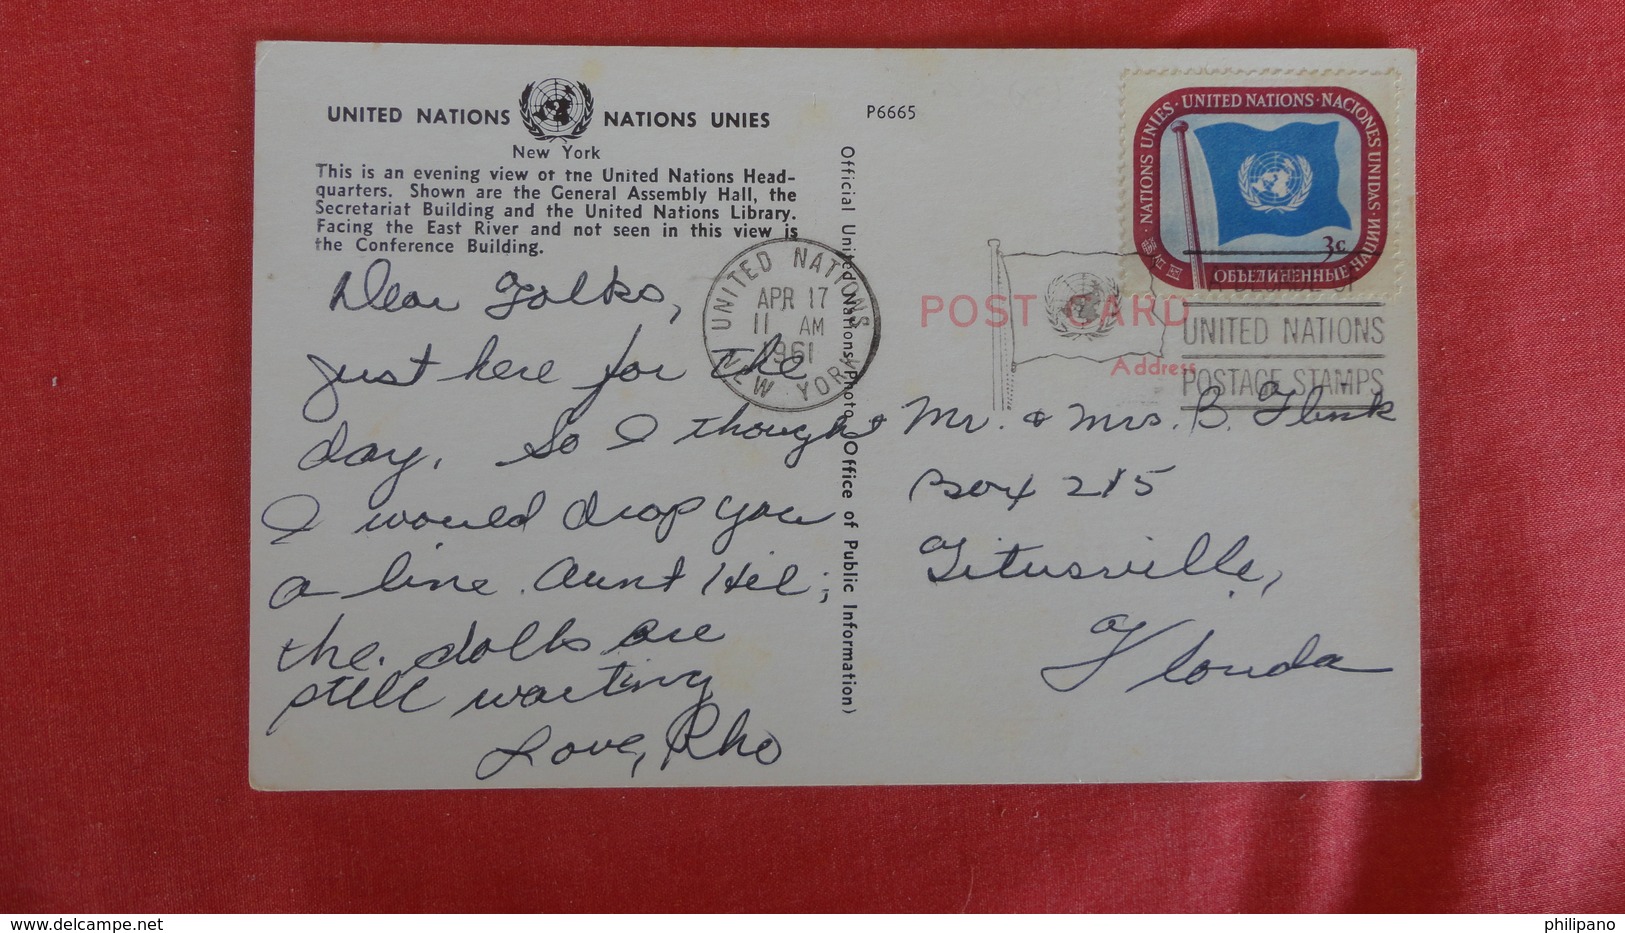 UNITED NATIONS NATIONS UNIES
New York
This is an evening view of the United Nations Head-
quarters. Shown are the General Assembly Hall, the
Secretariat Building and the United Nations Library.
Facing the East River and not seen in this view is
the Conference Building.
Dear Folks,
Just here for the
day. So I thought
I would drop you
a line. Aunt Hel;
the dolls are
still waiting
Love, Rho
Official United Nations Photo (Office of Public Information)
P6665
UNITED NATIONS
APR 17
11 AM
1961
NEW YORK
POST CARD
Address
UNITED NATIONS
POSTAGE STAMPS
NATIONS UNIES · UNITED NATIONS · NACIONES UNIDAS ·
ОБЪЕДИНЕННЫЕ НАЦИИ
3c
Mr. & Mrs. B. Flink
Box 215
Titusville,
Florida
philipano